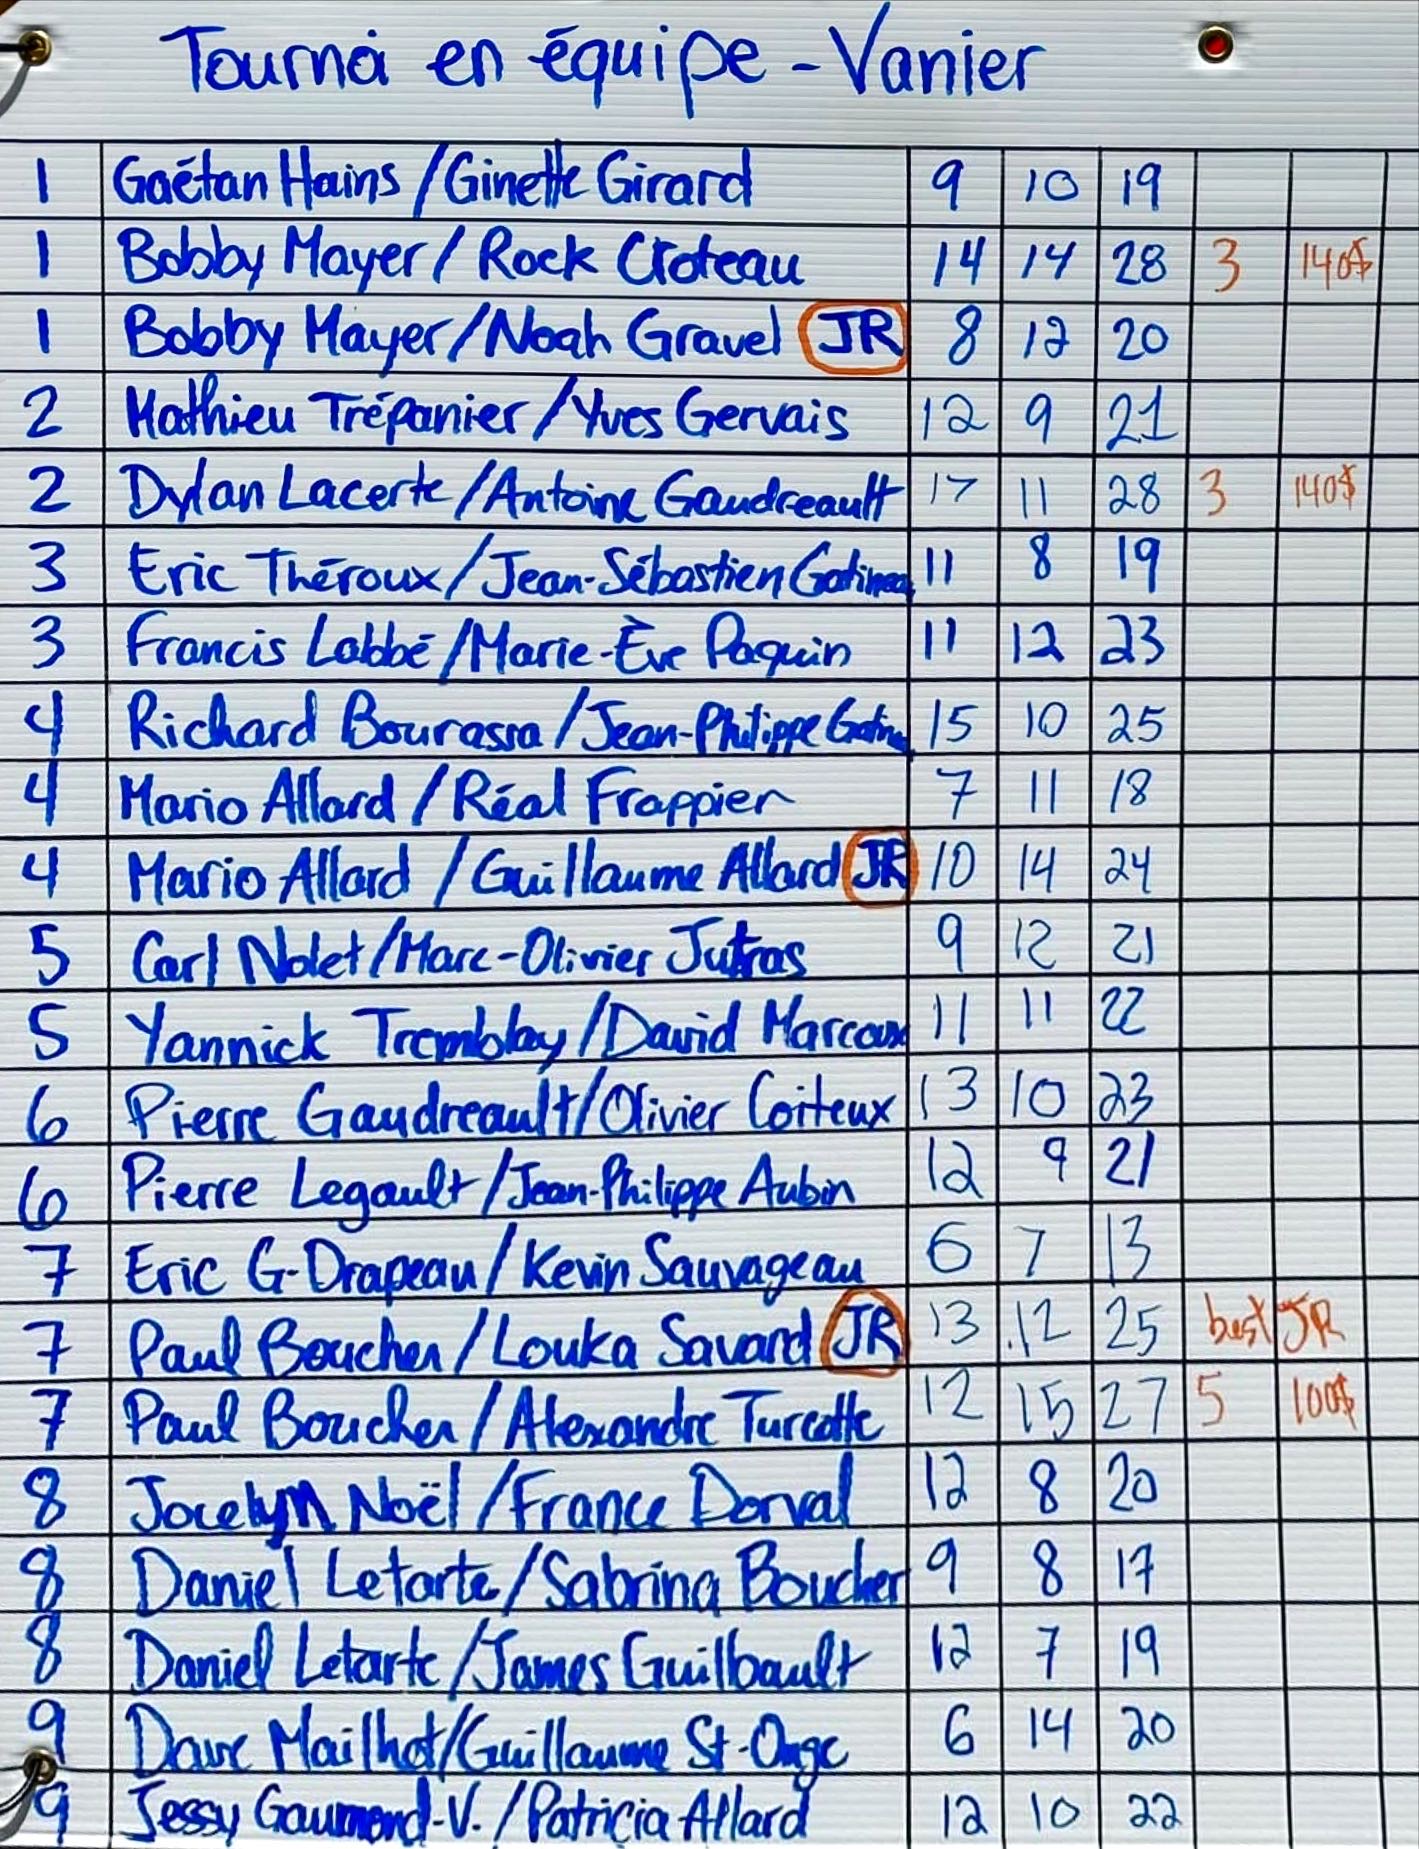 Tournoi en équipe - Vanier
1 Gaétan Hains / Ginette Girard 9 10 19
1 Bobby Mayer / Rock Croteau 14 14 28 3 140$
1 Bobby Mayer / Noah Gravel JR 8 12 20
2 Mathieu Trépanier / Yves Gervais 12 9 21
2 Dylan Lacerte / Antoine Gaudreault 17 11 28 3 140$
3 Eric Théroux / Jean-Sébastien Gatineau 11 8 19
3 Francis Labbé / Marie-Ève Paquin 11 12 23
4 Richard Bourassa / Jean-Philippe 15 10 25
4 Mario Allard / Réal Frappier 7 11 18
4 Mario Allard / Guillaume Allard JR 10 14 24
5 Carl Nolet / Marc-Olivier Jutras 9 12 21
5 Yannick Tremblay / David Marcoux 11 11 22
6 Pierre Gaudreault / Olivier Coiteux 13 10 23
6 Pierre Legault / Jean-Philippe Aubin 12 9 21
7 Eric G-Drapeau / Kevin Sauvageau 6 7 13
7 Paul Boucher / Louka Savard JR 13 12 25 best JR
7 Paul Boucher / Alexandre Turcotte 12 15 27 5 100$
8 Jocelyn Noël / France Dorval 12 8 20
8 Daniel Letarte / Sabrina Boucher 9 8 17
8 Daniel Letarte / James Guilbault 12 7 19
9 Dave Mailhot / Guillaume St-Onge 6 14 20
9 Jessy Gaumond-V. / Patricia Allard 12 10 22